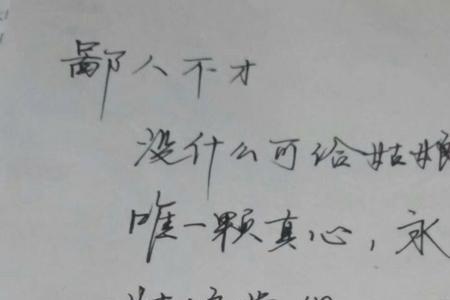 鄙人不才
没什么可给姑娘
唯一颗真心，永